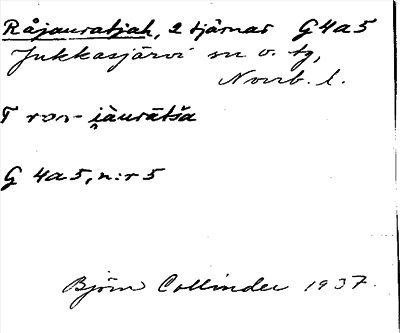 Råjauratjah, 2 tjärnar G4a5
Jukkasjärvi sn o. tg,
Norrb. l.
G 4a5, n:r 5
Björn Collinder 1937.